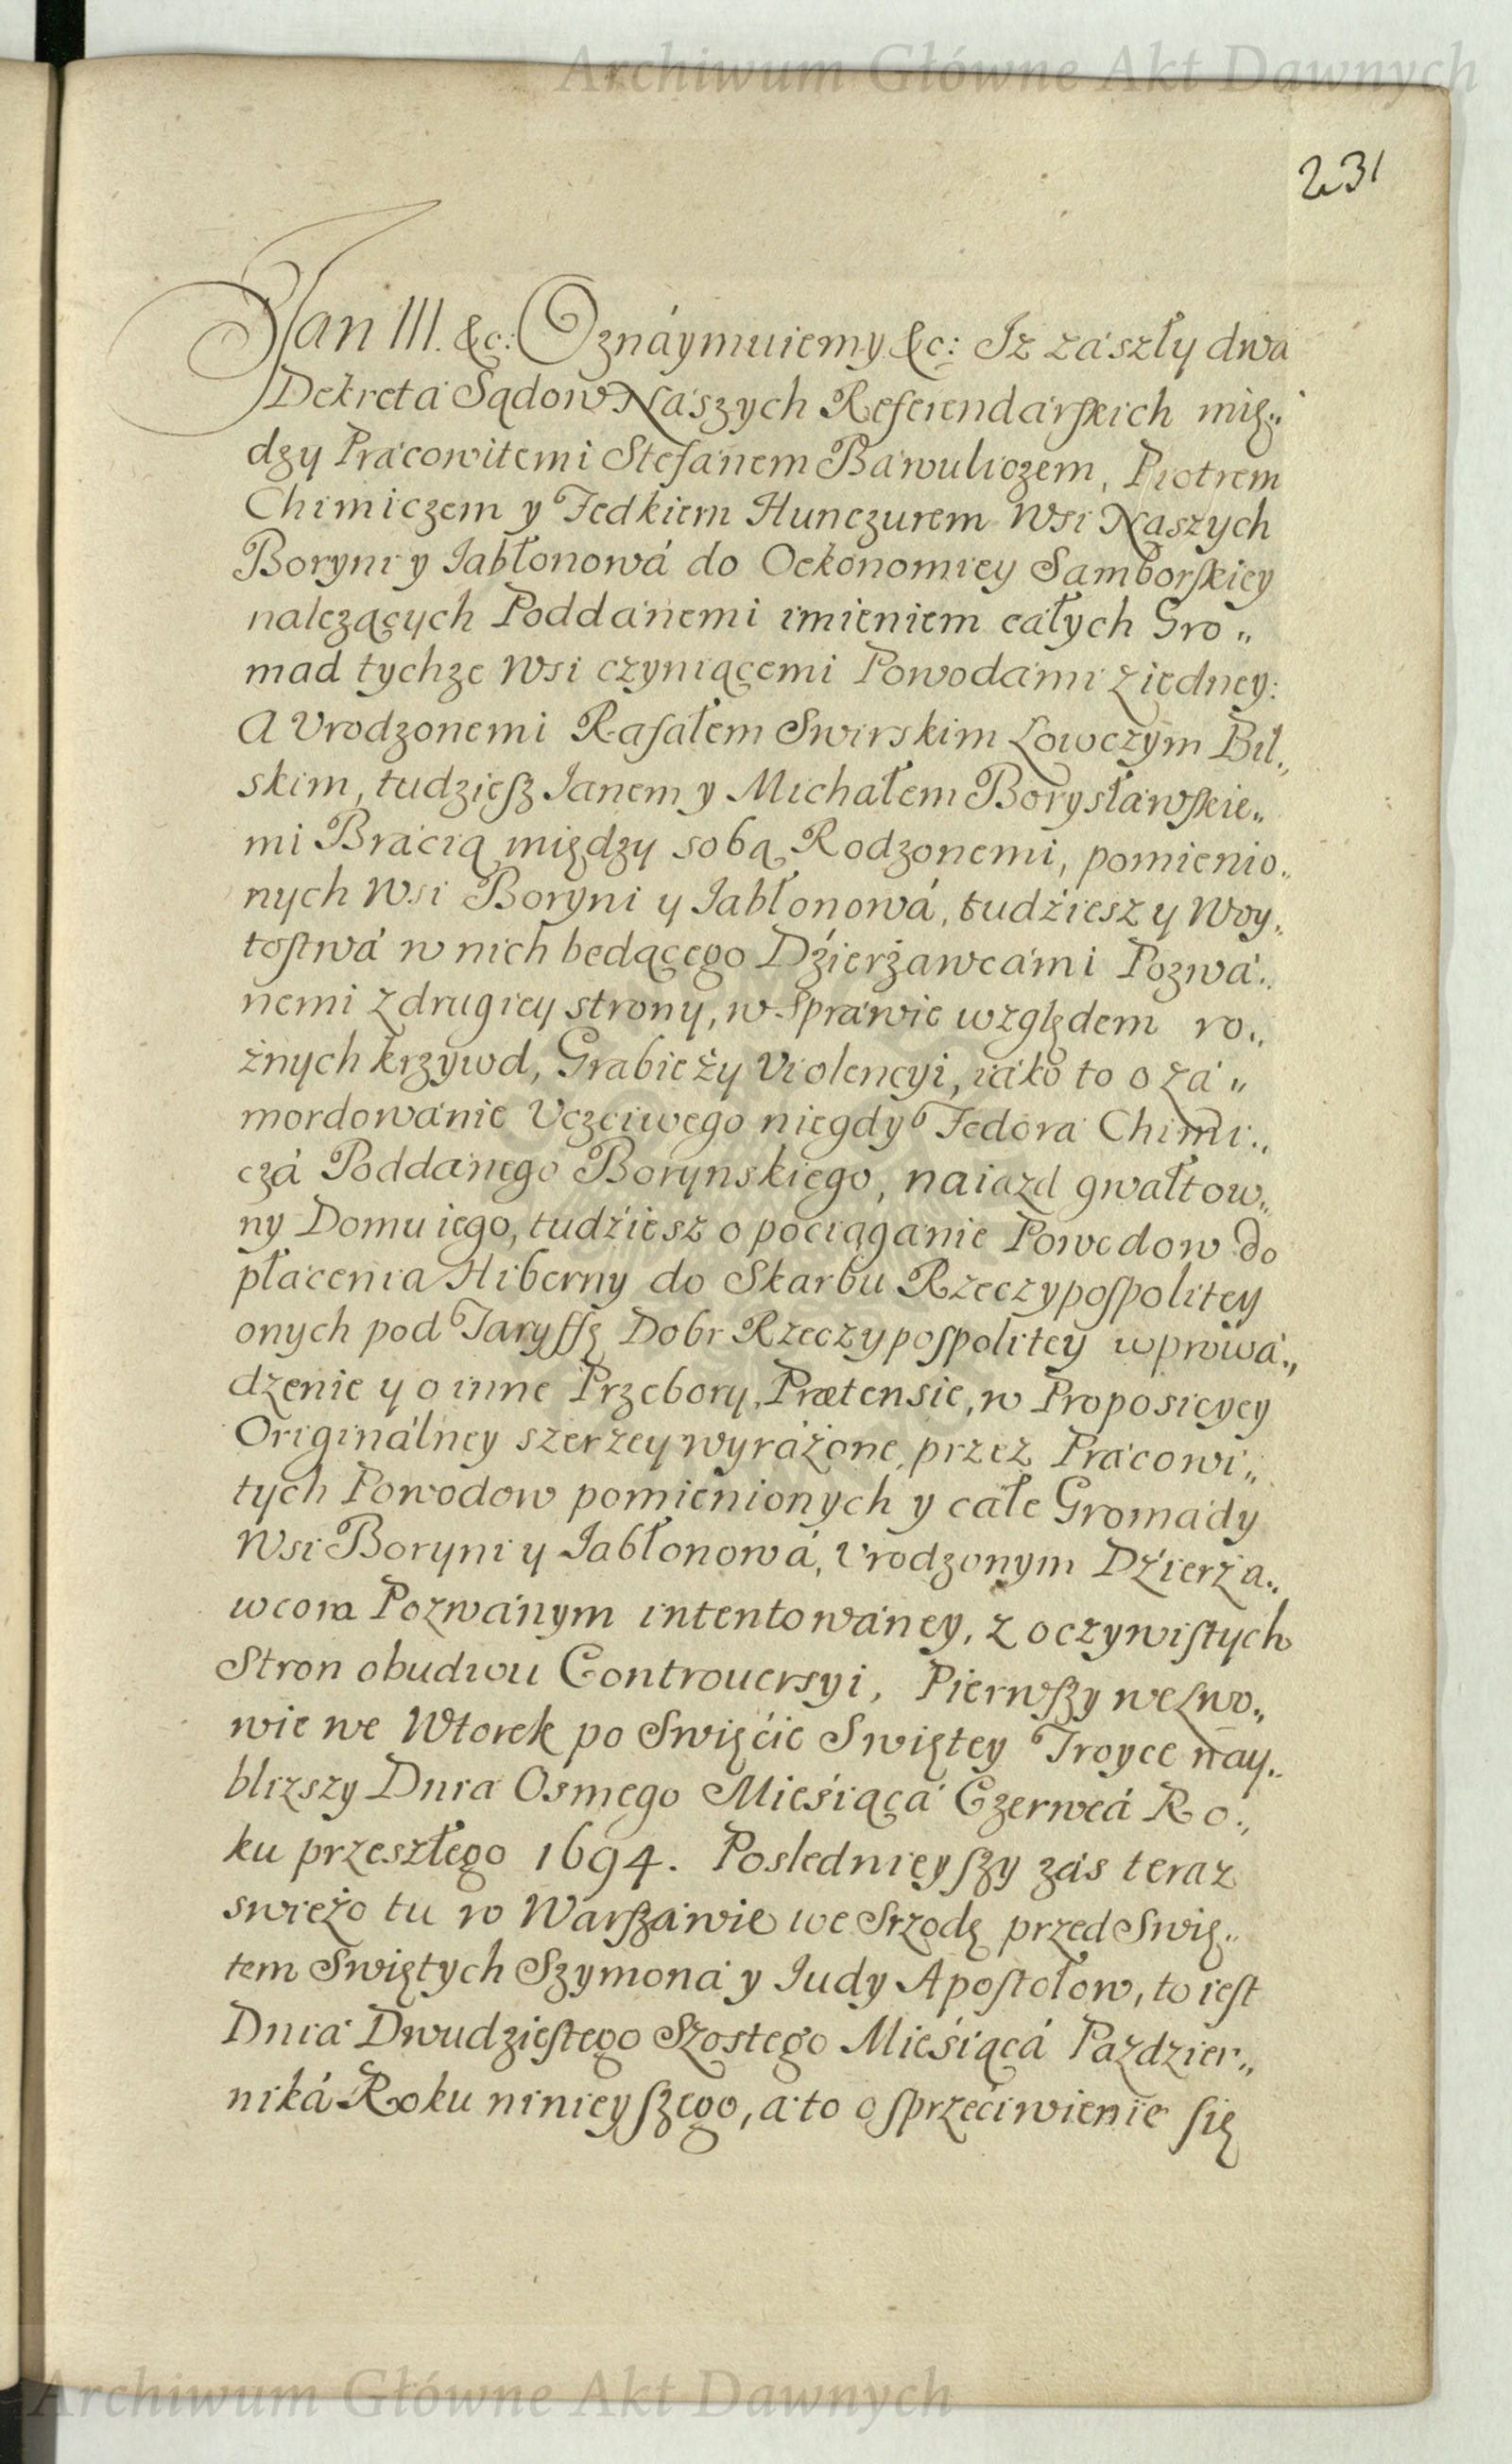 Archiwum Główne Akt Dawnych
231
Jan III. &c: Oznáymuiemy &c: Iz zászły dwa
Dekretá Sądow Nászych Referendárskich mię„
dzy Prácowitemi Stefánem Báwuliczem, Piotrem
Chimiczem y Fedkiem Hunczurem Wsi Naszych
Boryni y Jabłonowá do Oekonomiey Samborskiey
nalezących Poddánemi imieniem cáłych Gro„
mad tychze Wsi czyniącemi Powodámi z iedney:
A Vrodzonemi Rafałem Swirskim Łowczym Bił„
skim, tudziesz Janem y Michałem Borysłáwskie„
mi Brácią między sobą Rodzonemi, pomienio„
nych Wsi Boryni y Jabłonowá, tudźiesz y Woy„
tostwá w nich bedącego Dźierżawcámi Pozwá„
nemi z drugiey strony, w Spráwie względem ro„
żnych krzywd, Grabieży Violencyi, iáko to o zá„
mordowánie Vczciwego niegdy Fedorá Chimi„
czá Poddánego Borynskiego, naiazd gwałtow„
ny Domu iego, tudźiesz o pociąganie Powodow do
płácenia Hiberny do Skarbu Rzeczypospolitey
onych pod Taryffę Dobr Rzeczypospolitey wprowá„
dzenie y o inne Przebory, Prætensie, w Proposicyey
Originálney szerzey wyráżone, przez Prácowi„
tych Powodow pomienionych y całe Gromády
Wsi Boryni y Jabłonowá, Vrodzonym Dźierża„
wcom Pozwánym intentowáney, z oczywistych
Stron obudwu Controuersyi, Pierwszy we Lwo„
wie we Wtorek po Swięćie Swiętey Troyce náy„
blizszy Dnia Osmego Mieśiącá Czerwcá Ro„
ku przeszłego 1694. Posledniey szy zás teraz
swieżo tu w Warszáwie we Srzodę przed Swię„
tem Swiętych Szymoná y Judy Apostołow, to iest
Dniá Dwudziestego Szostego Mieśiącá Pazdzier„
niká Roku ninieyszego, á to o sprzeciwienie się
Archiwum Główne Akt Dawnych